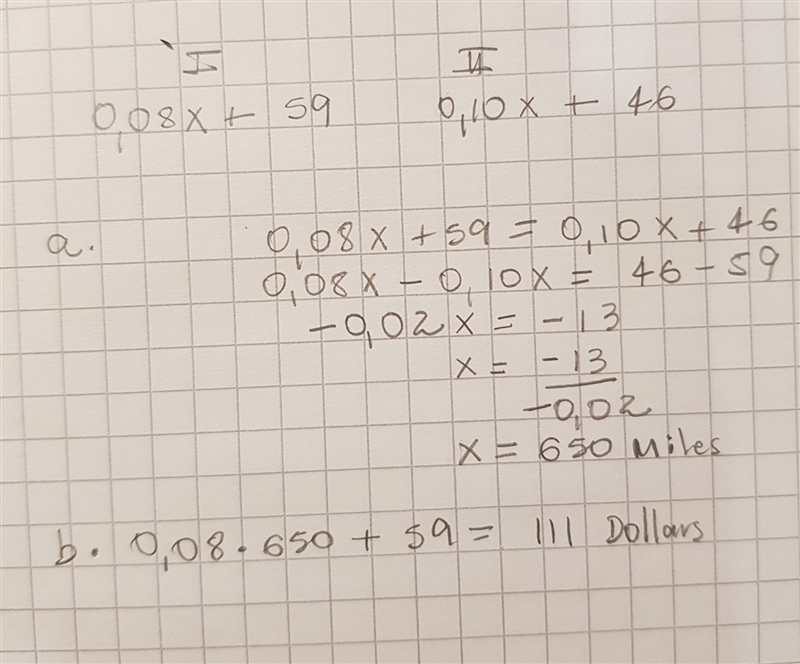 I II
0,08x + 59 0,10x + 46
a. 0,08x + 59 = 0,10x + 46
0,08x - 0,10x = 46 - 59
-0,02x = -13
x = -13
-0,02
x = 650 Miles
b. 0,08 · 650 + 59 = 111 Dollars